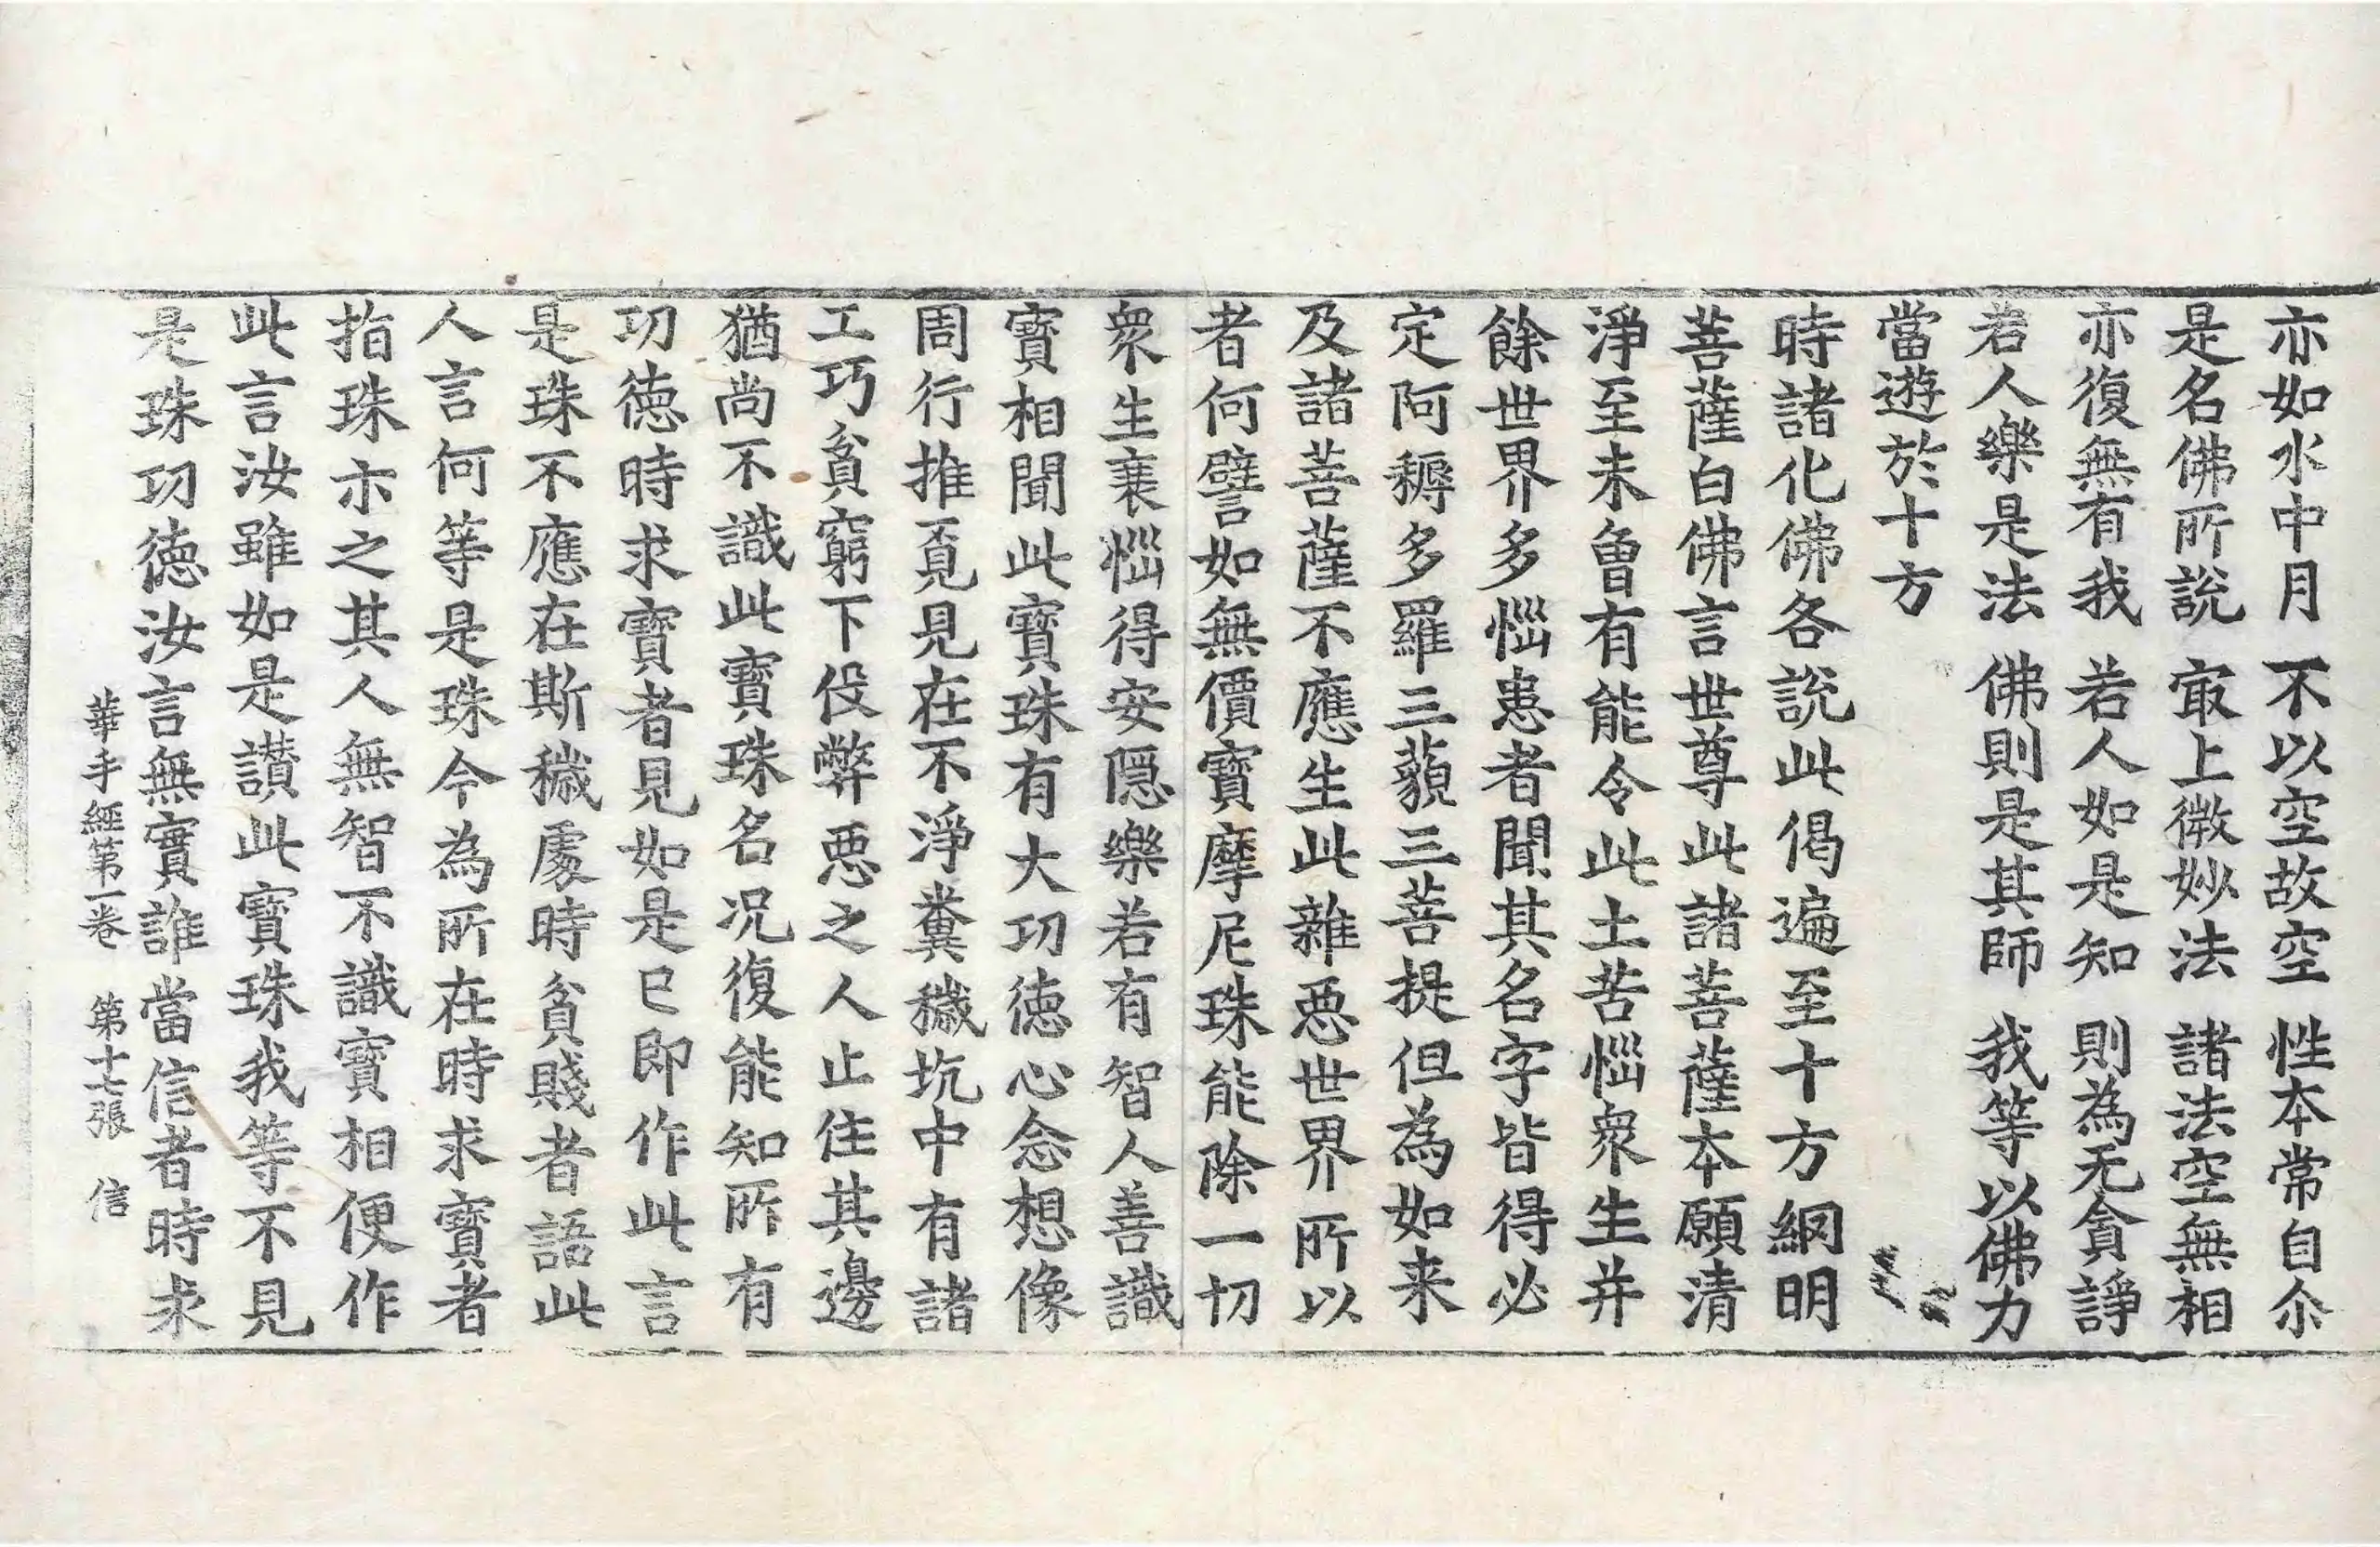 亦如水中月　不以空故空　性本常自尒
是名佛所說　㝡上微妙法　諸法空無相
亦復無有我　若人如是知　則為无貪諍
若人樂是法　佛則是其師　我等以佛力
當遊於十方
時諸化佛各說此偈遍至十方網明
菩薩白佛言世尊此諸菩薩本願清
淨至未曾有能令此土苦惱衆生并
餘世界多惱患者聞其名字皆得必
定阿耨多羅三藐三菩提但為如来
及諸菩薩不應生此雜惡世界所以
者何譬如無價寶摩尼珠能除一切
衆生衰惱得安隱樂若有智人善識
寶相聞此寶珠有大功德心念想像
周行推覓見在不淨糞穢坑中有諸
工巧貧窮下伇弊惡之人止住其邊
猶尚不識此寶珠名况復能知所有
功德時求寶者見如是已即作此言
是珠不應在斯穢處時貧賤者語此
人言何等是珠今為所在時求寶者
指珠示之其人無智不識寶相便作
此言汝雖如是讃此寶珠我等不見
是珠功德汝言無實誰當信者時求
華手經第一卷　第十七張　信